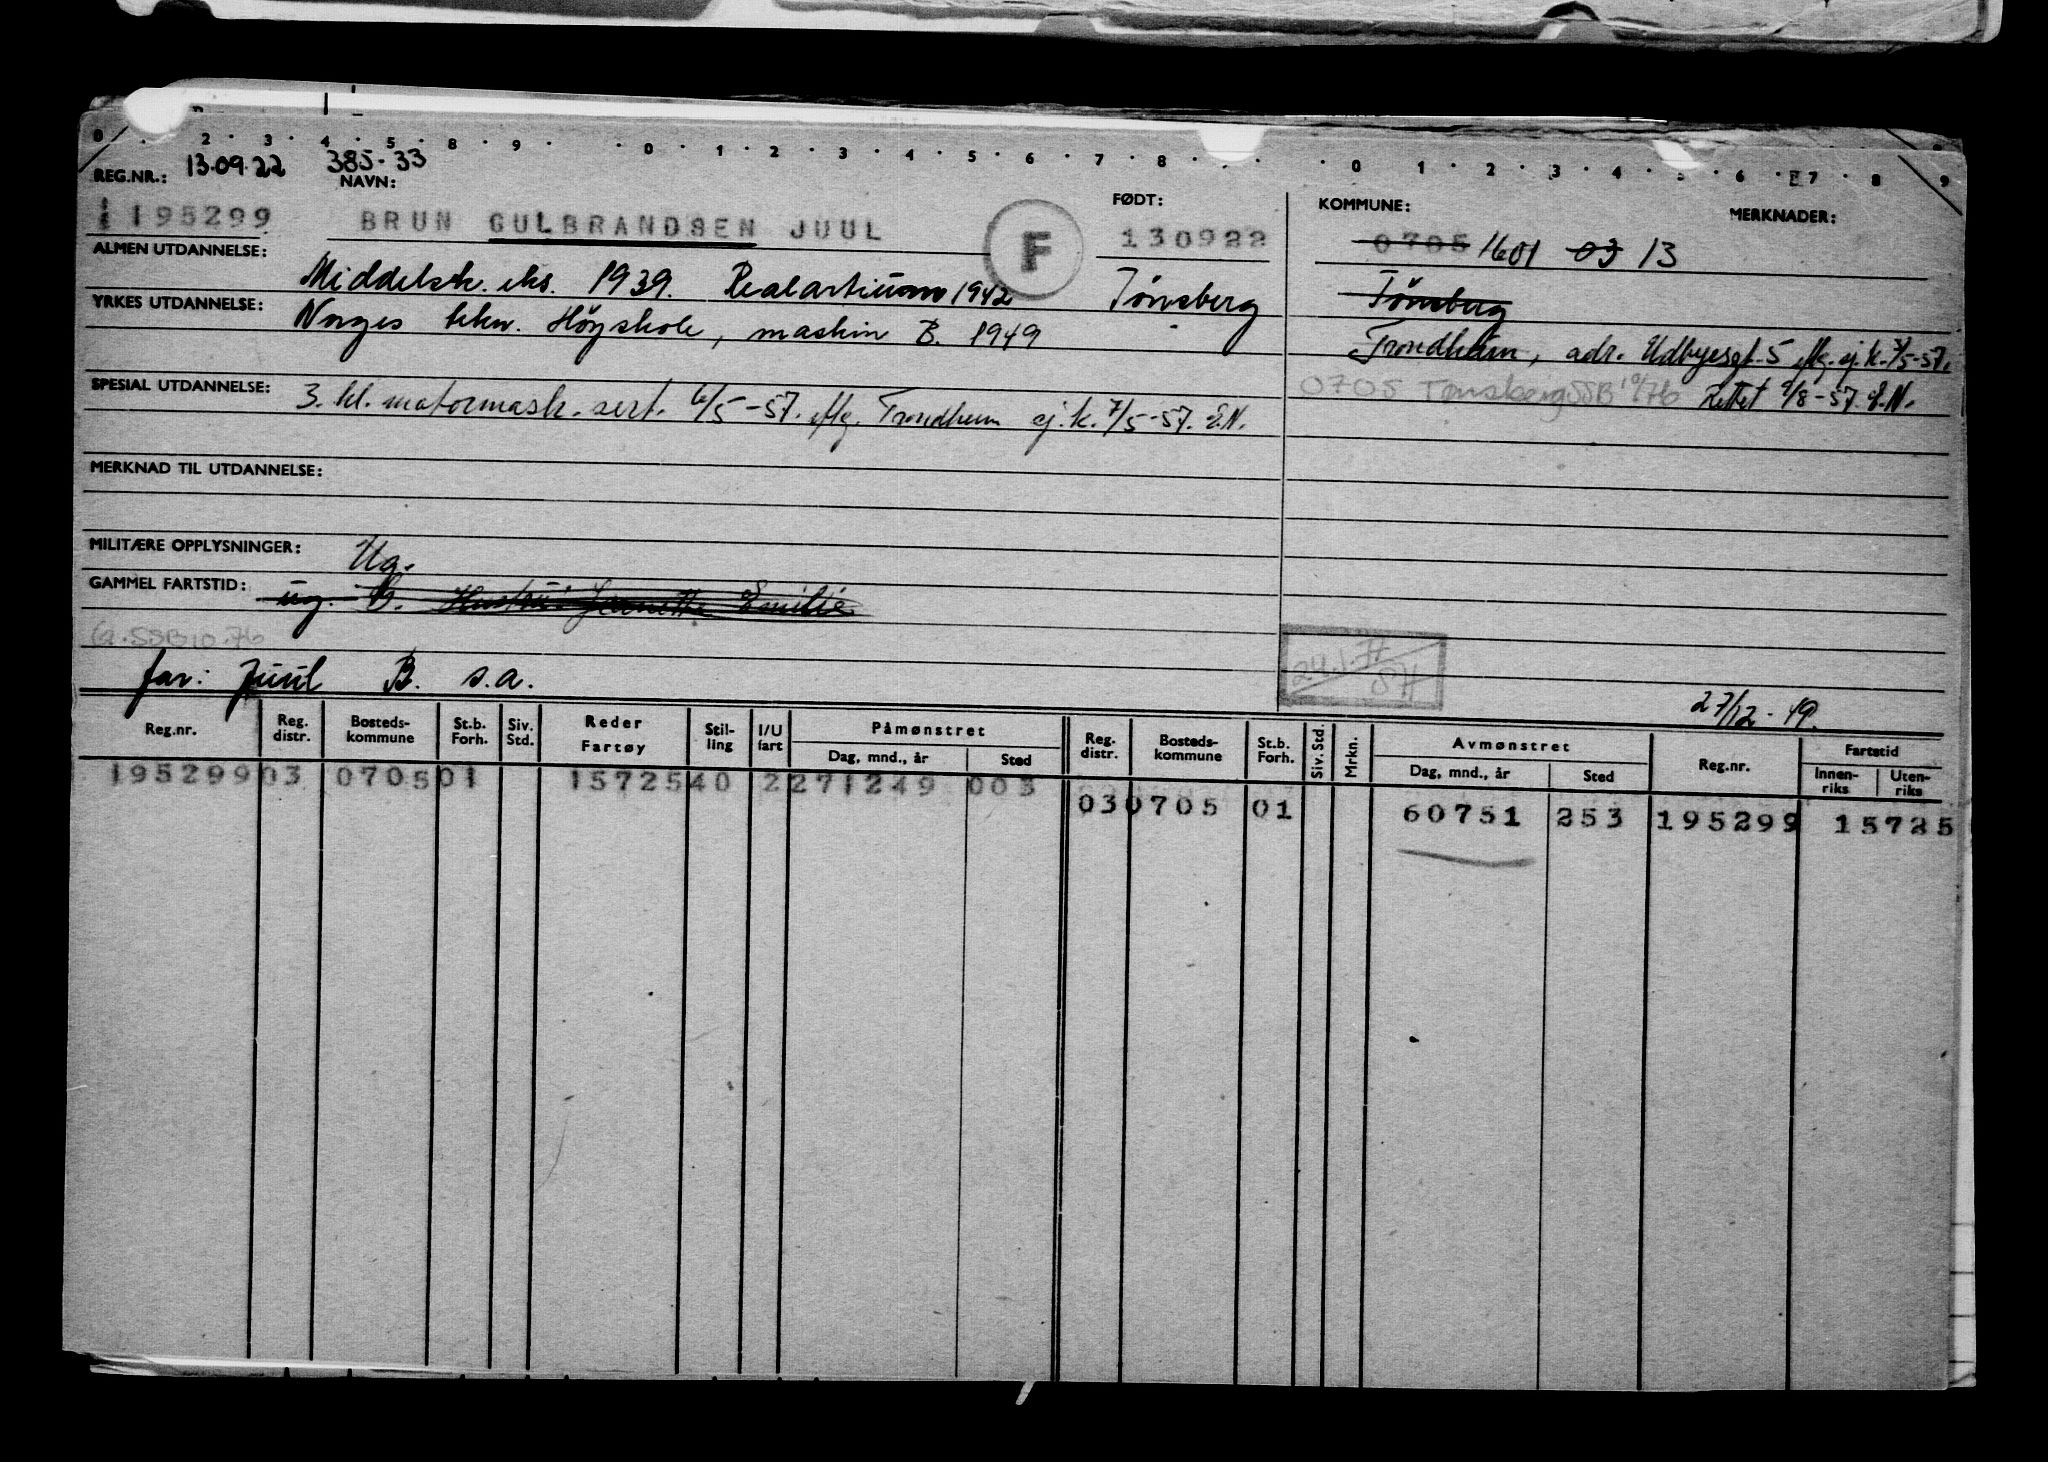 0 2 3 4 5 8 9 0 1 2 3 4 5 6 7 8 0 1 2 3 4 5 6 7 8 9
REG.NR.: 13.09.22 385-33
NAVN: FØDT: KOMMUNE: MERKNADER:
195299 BRUN GULBRANDSEN JUUL F 130922 0705 1601 03 13
ALMEN UTDANNELSE: Middelsk. eks. 1939. Realartium 1942 Tönsberg Tönsberg
YRKES UTDANNELSE: Norges tekn. Högskole, maskin B. 1949
Trondheim, adr. Udbyesgt. 5 ej.k. 7/5-57.
0705 Tønsberg SSB 10/76 Rettet 9/8-57. E.N.
SPESIAL UTDANNELSE: 3. kl. motormask. sert. 6/5-57. Trondheim ej.k. 7/5-57. E.N.
MERKNAD TIL UTDANNELSE:
MILITÆRE OPPLYSNINGER: Ug.
GAMMEL FARTSTID: ug. B. Hustru: Emilie
G.SSB10.76
far: Juul B. s.a.
27/12-49.
Reg.nr. Reg. distr. Bosteds-kommune St.b. Forh. Siv. Std. Reder Fartøy Stil-ling I/U fart Påmønstret Dag, mnd., år Sted Reg. distr. Bosteds-kommune St.b. Forh. Siv. Std. Mrkn. Avmønstret Dag, mnd., år Sted Reg.nr. Fartstid Innen-riks Uten-riks
195299 03 0705 01 15725 40 2 271249 003
03 0705 01 60751 253 195299 15725